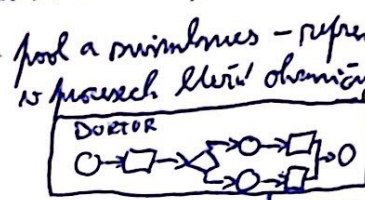 pool a swimlanes - repre
v procesech které ohranič
DOKTOR